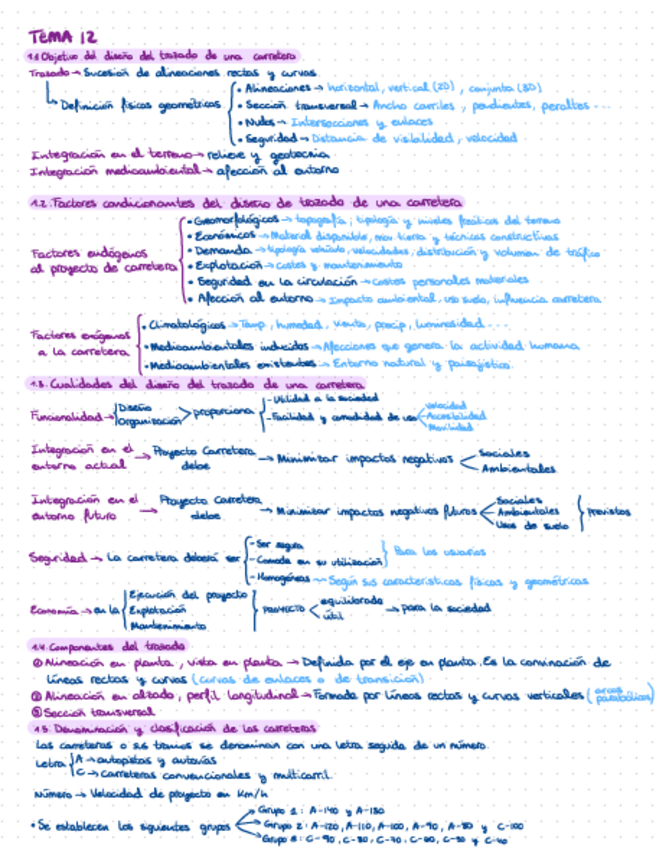 TEMA 12
1.1 Objetivo del diseño del trazado de una carretera
Trazado → Sucesión de alineaciones rectas y curvas
Definición físicas geométricas
• Alineaciones → horizontal, vertical (2D), conjunta (3D)
• Sección transversal → Ancho carriles, pendientes, peraltes ...
• Nudos → Intersecciones y enlaces
• Seguridad → Distancia de visibilidad, velocidad
Integración en el terreno → relieve y geotecnia
Integración medioambiental → afección al entorno
1.2. Factores condicionantes del diseño de trazado de una carretera
Factores endógenos
al proyecto de carretera
• Geomorfológicos → topografía, tipología y niveles freáticos del terreno
• Económicos → Material disponible, mov tierra y técnicas constructivas
• Demanda → tipología vehículo, velocidades, distribución y volumen de tráfico
• Explotación → costes y mantenimiento
• Seguridad en la circulación → costes personales materiales
• Afección al entorno → Impacto ambiental, uso suelo, influencia carretera
Factores exógenos
a la carretera
• Climatológicos → Temp, humedad, viento, precip, luminosidad...
• Medioambientales inducidos → Afecciones que genera la actividad humana
• Medioambientales existentes → Entorno natural y paisajístico.
1.3. Cualidades del diseño del trazado de una carretera
Funcionalidad → Diseño Organización > proporciona
- Utilidad a la sociedad
- Facilidad y comodidad de uso
velocidad
Accesibilidad
Movilidad
Integración en el entorno actual → Proyecto Carretera debe → Minimizar impactos negativos
Sociales
Ambientales
Integración en el entorno futuro → Proyecto Carretera debe → Minimizar impactos negativos futuros
Sociales
Ambientales
Usos de suelo
previstos
Seguridad → La carretera deberá ser
- Ser segura
- Comoda en su utilización
Para los usuarios
- Homogéneas → Según sus características físicas y geométricas
Economía → en la
Ejecución del proyecto
Explotación
Mantenimiento
PROYECTO < equilibrado útil → para la sociedad
1.4 Componentes del trazado
① Alineación en planta, vista en planta → Definida por el eje en planta. Es la convinación de
líneas rectas y curvas (curvas de enlaces o de transición)
② Alineación en alzado, perfil longitudinal → Formada por líneas rectas y curvas verticales (arcos parabólicos)
③ Sección transversal
1.5 Denominación y clasificación de las carreteras
Las carreteras o sus tramos se denominan con una letra seguida de un número.
Letra
A → autopistas y autovías
C → Carreteras convencionales y multicarril.
Número → Velocidad de proyecto en Km/h
• Se establecen los siguientes grupos
Grupo 1: A-140 y A-130
Grupo 2: A-120, A-110, A-100, A-90, A-80 y C-100
Grupo 3: C-90, C-80, C-70, C-60, C-50 y C-40